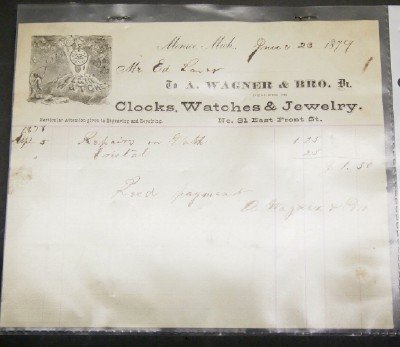 Monroe, Mich. June 23 1879
Mr Ed
To A. WAGNER & BRO. Dr.
Clocks, Watches & Jewelry.
Particular Attention given to Engraving and Repairing. No. 81 East Front St.
1878
Sept 5 Repairs on Watch 1.25
" Cristal 25
$1.50
Recd payment
A Wagner & Bro